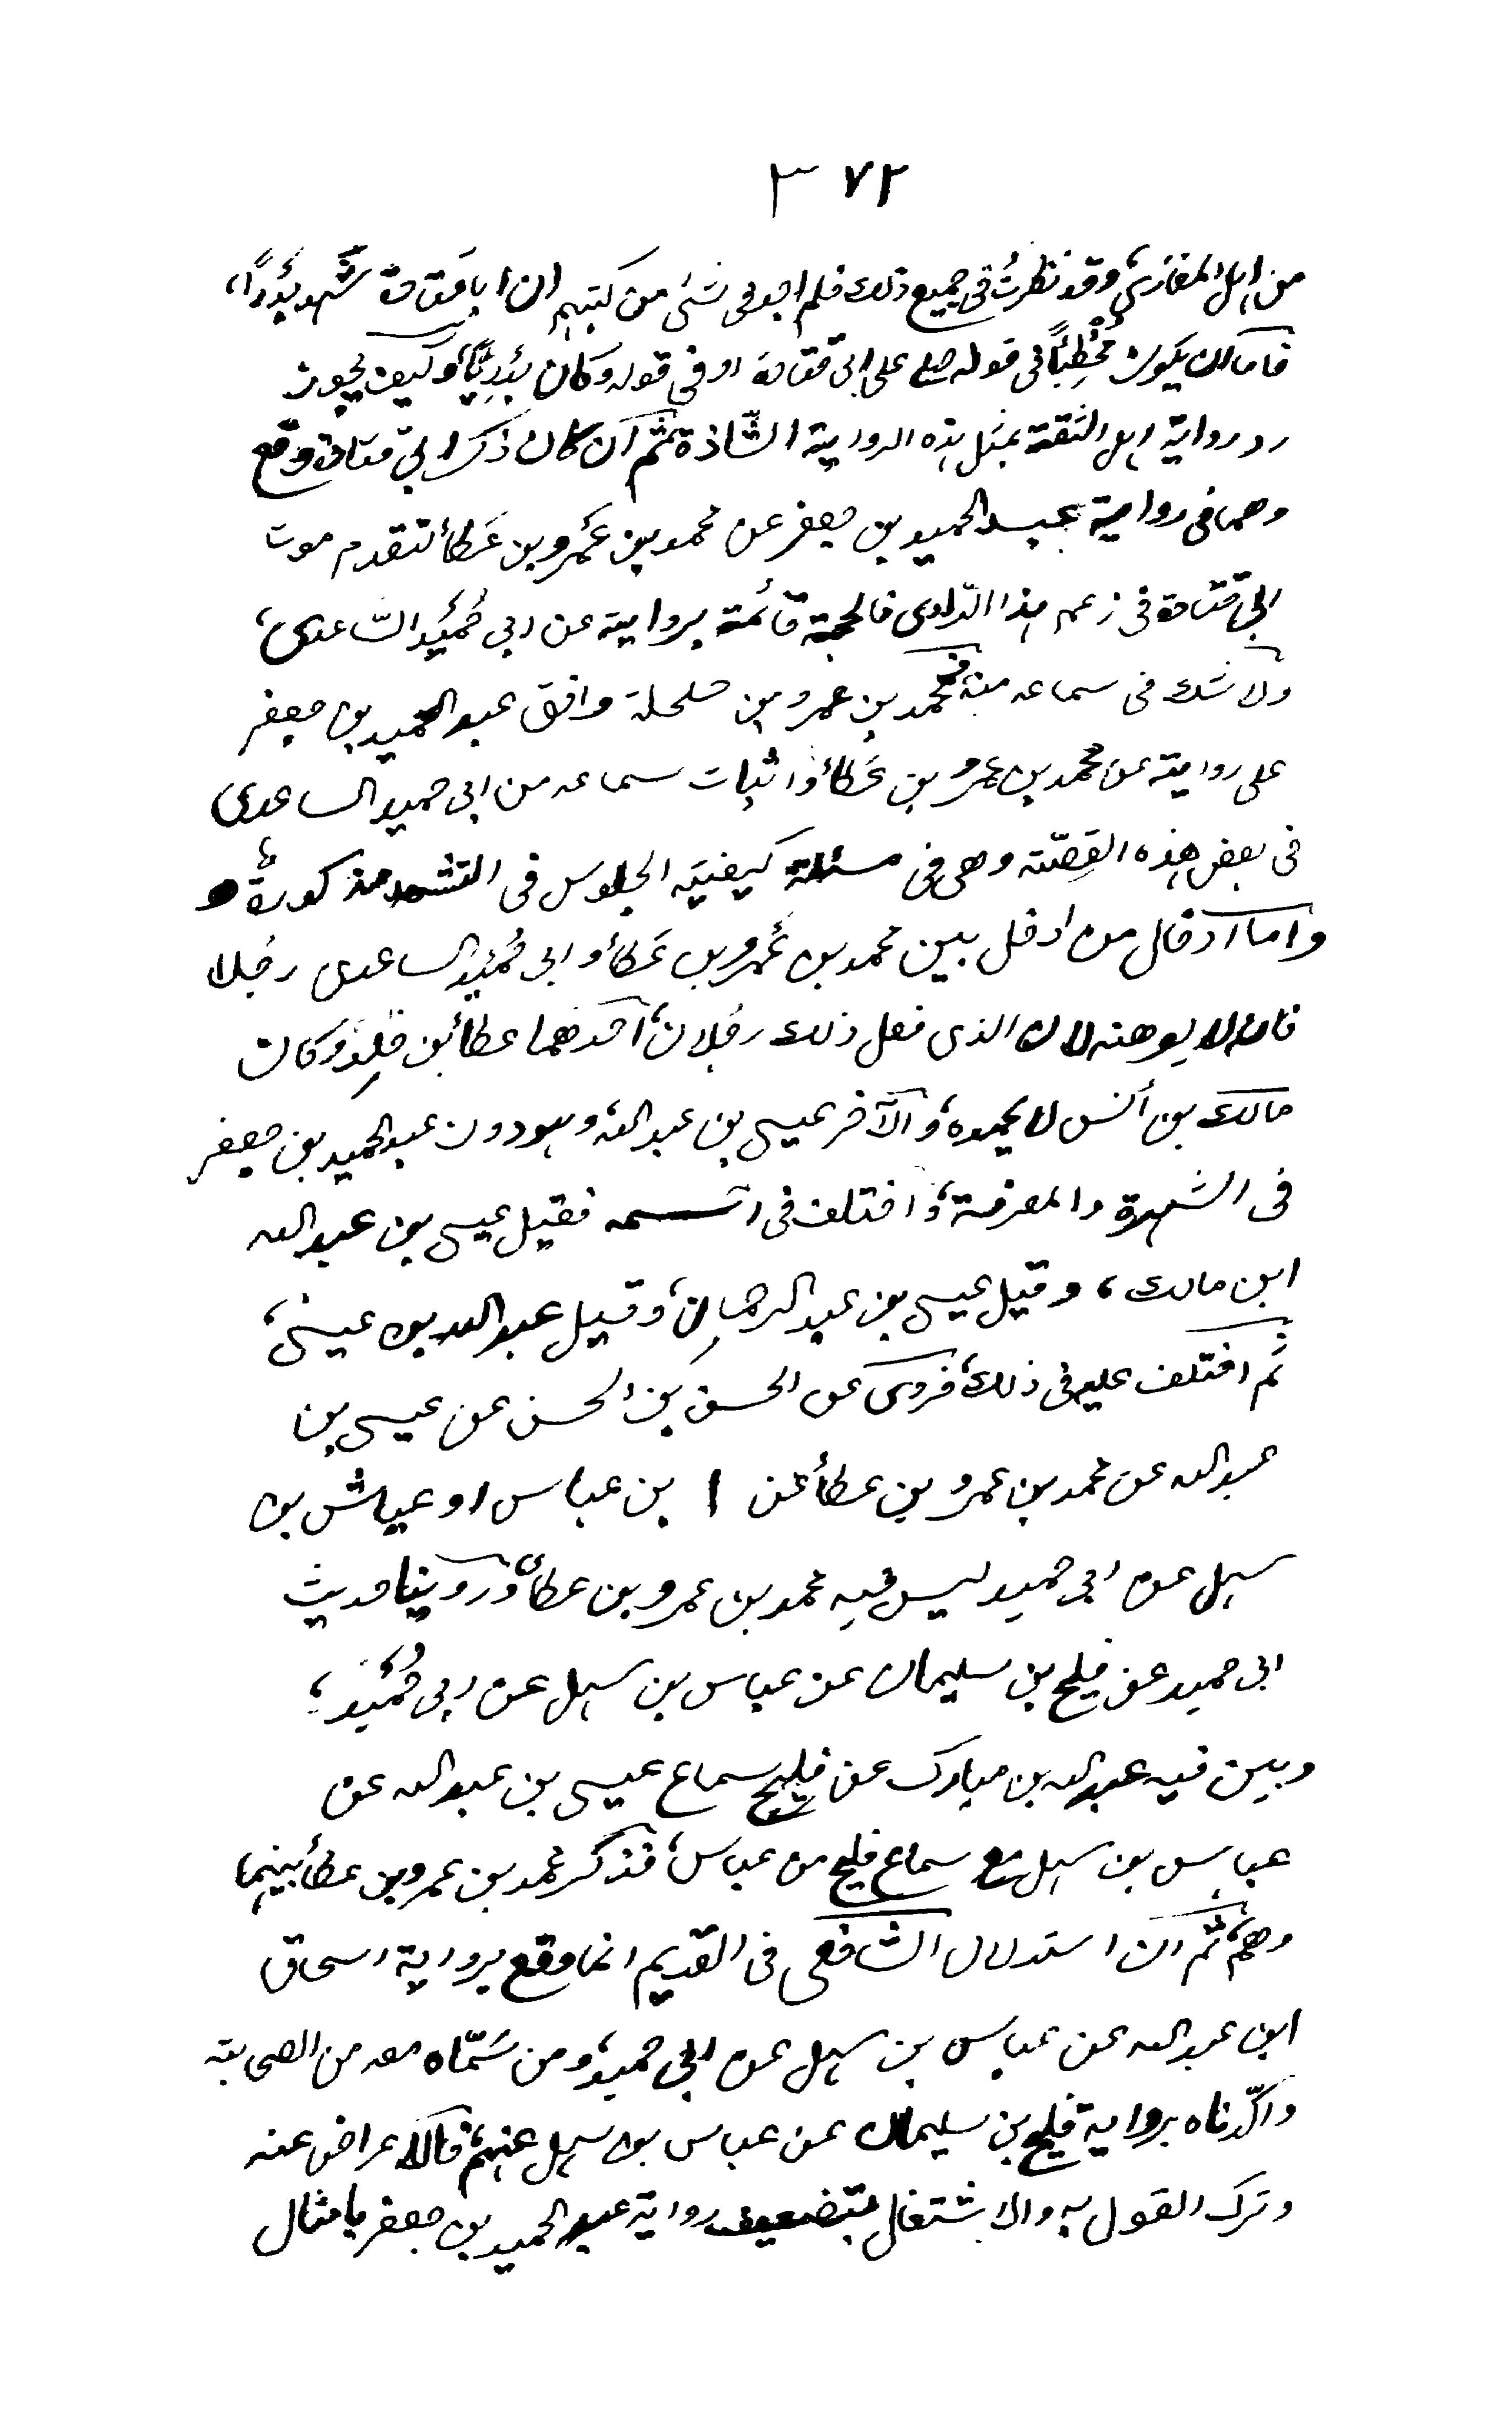 ٣٧٢
من اہل المغازی، وقد نظرتُ فی جمیع ذلک فلم اجد فی شئ من کتبہم ان ابا قتادۃ شہد بَدْراً،
فاما ان یکون مُخْطِئاً فی قولہ صلے علی ابی قتادۃ او فی قولہ وکان بَدْرِیًّا، وکیف یجوز
رد روایۃ اہل الثقۃ بمثل ہذہ الروایۃ الشّاذۃ، ثُم ان کان ذکر ابی قتادۃ وقع
وھما فی روایۃ عبد الحمید بن جعفر عن محمد بن عَمْرو بن عَطاءٍ لتقدم موت
ابی قتادۃ فی زعم ہذا الرّاوی فالحجۃ قائمۃ بروایتہ عن ابی حُمَیْد السّاعدی،
ولا شک فی سماعہ منہ، فمحمد بن عمرو بن حلحلۃ وافق عبد الحمید بن جعفر
علی روایتہ عن محمد بن عمرو بن عَطاءٍ واثبات سماعہ من ابی حمید الساعدی
فی بعض ھذہ القِصّتہ وھی فی مسئلۃ کیفیۃ الجلوس فی التشہد مذکورۃٌ،
واما ادخال من ادخل بین محمد بن عَمْرو بن عَطاءٍ وابی حُمَیْد الساعدی رجُلا
فانہ لا یوھنہ لان الذی فعل ذلک رجُلان، احدھما عطاء بن خالِد وکان
مالک بن أنس لا یحمدہ، والآخر عیسی بن عبد اللہ، وہو دون عبد الحمید بن جعفر
فی الشہرۃ والمعرفۃ، واختلف فی اسمہ فقیل عیسی بن عبد اللہ
ابن مالک، وقیل عیسی بن عبد الرحمانِ، وقیل عبد اللہ بن عیسٰی،
ثم اختلف علیہ فی ذلک، فروی عن الحسن بن الحسن عن عیسی بن
عبد اللہ عن محمد بن عمرو بن عطاء عن ا بن عباس او عیاش بن
سہل عن ابی حمید لیس فیہ محمد بن عمرو بن عطاء، وروینا حدیث
ابی حمید عن فلیح بن سلیمان عن عباس بن سہل عن ابی حُمَیْد،
وبین فیہ عبد اللہ بن مبارک عن فلیح سماع عیسی بن عبد اللہ عن
عباس بن سہل مع سماع فلیح من عباس، فذکر محمد بن عمرو بن عطاء بینہما
وھم، ثُم ان استدلال الشافعی فی القدیم انما وقع بروایۃ اسحاق
ابن عبد اللہ عن عباس بن سہل عن ابی حمید، ومن سَمّاہ معہ من الصحابتہ
واکّدناہ بروایۃ فلیح بن سلیمان عن عباس بن سہل عنہم، فالاعراض عنہ
وترک القول بہ والاشتغال بتضعیف روایۃ عبد الحمید بن جعفر بامثال